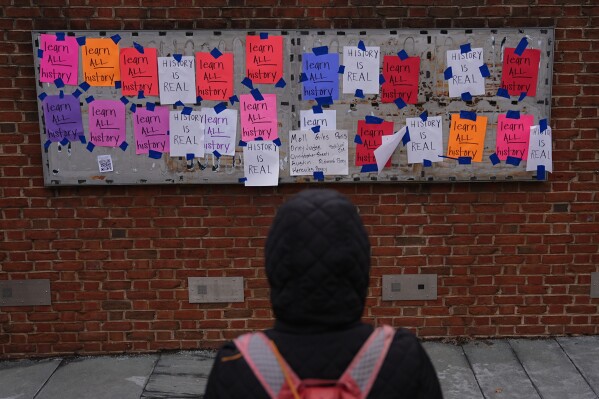 learn
ALL
history
learn
ALL
history
learn
ALL
history
HISTORY
is
REAL
learn
ALL
history
learn
ALL
history
learn
ALL
history
HISTORY
is
REAL
learn
ALL
history
HISTORY
is
REAL
learn
ALL
history
learn
ALL
history
learn
ALL
history
learn
ALL
history
HISTORY
is
REAL
learn
ALL
history
learn
ALL
history
HISTORY
is
REAL
learn
learn
ALL
history
HISTORY
is
REAL
learn
ALL
history
learn
ALL
history
HISTORY
is
REAL